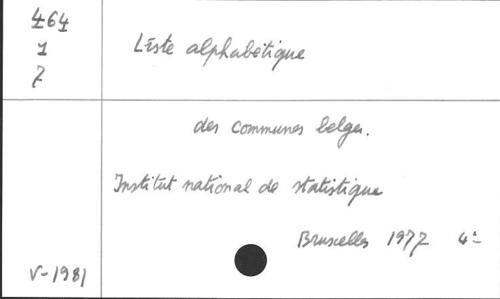 464
1
7
Liste alphabétique
des communes belges.
Institut national de statistique
Bruxelles 1977 4°
V-1981